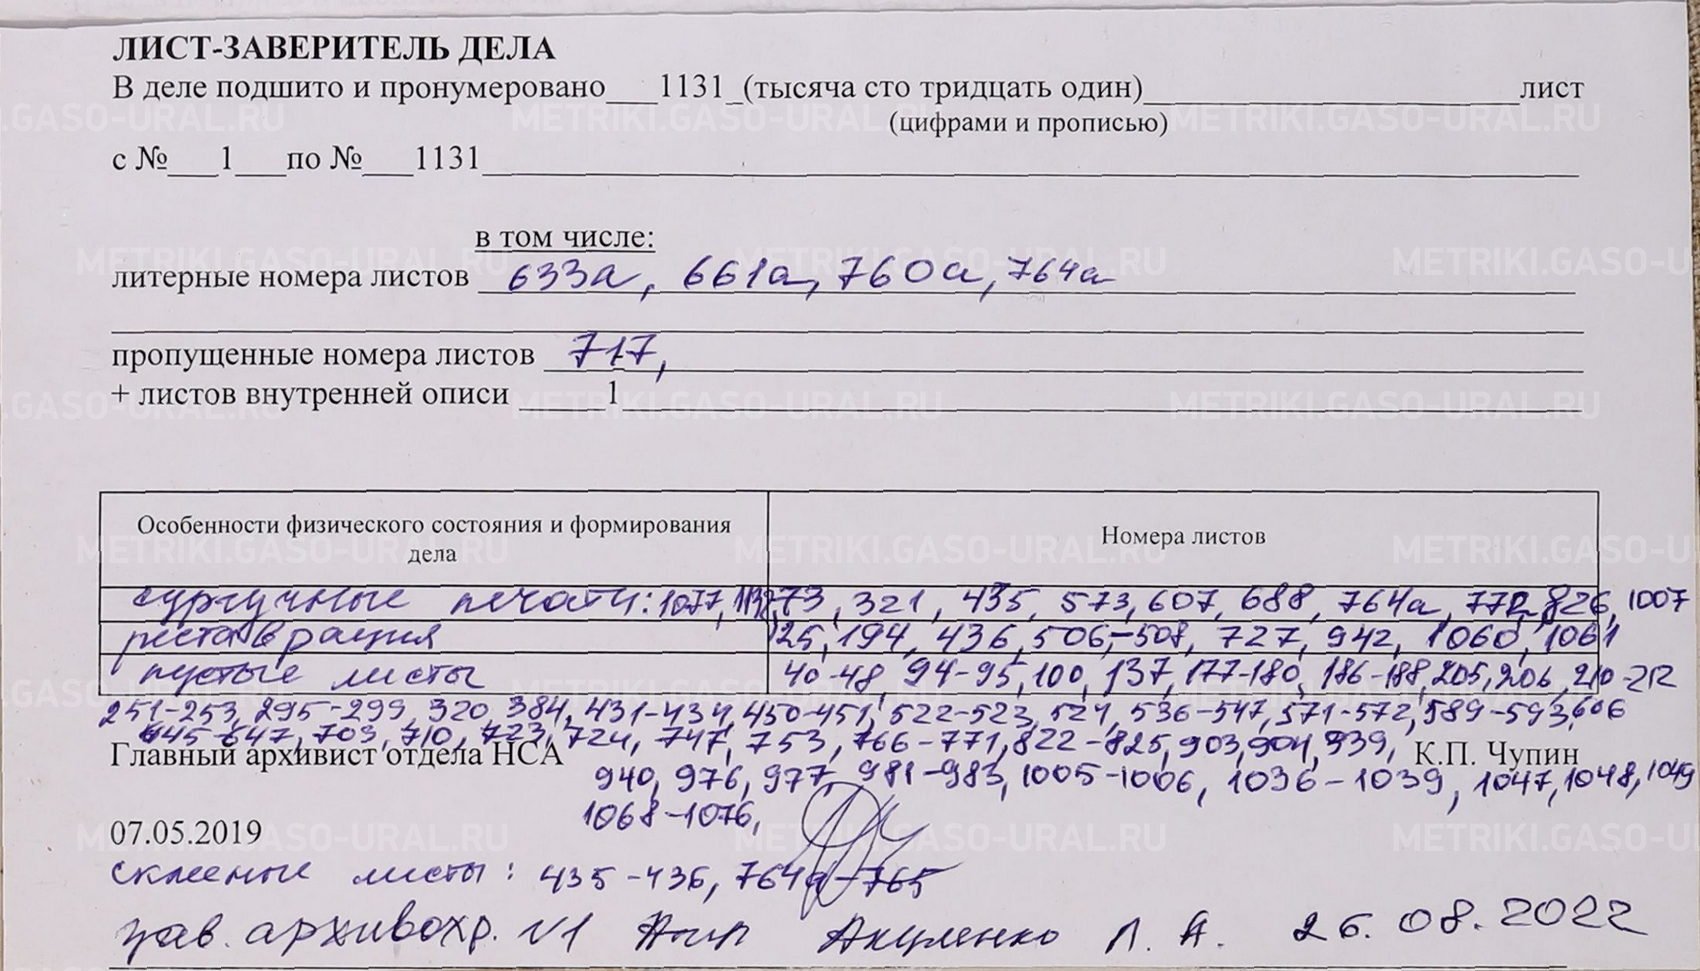 ЛИСТ-ЗАВЕРИТЕЛЬ ДЕЛА
В деле подшито и пронумеровано___1131_(тысяча сто тридцать один)______лист
(цифрами и прописью)
с №___1___по №___1131______
в том числе:
литерные номера листов 633а, 661а, 760а, 764а
пропущенные номера листов 717,
+ листов внутренней описи 1
Особенности физического состояния и формирования дела
Номера листов
сургучные печати: 1077, 1132, 73, 321, 435, 573, 607, 688, 764а, 772, 826, 1007
реставрация 125, 194, 436, 506-508, 727, 942, 1060, 1061
пустые листы 40-48, 94-95, 100, 137, 177-180, 186-188, 205, 206, 210-212
251-253, 295-299, 320, 384, 431-434, 450-451, 522-523, 524, 536-547, 571-572, 589-593, 606
645-647, 703, 710, 723, 724, 747, 753, 766-771, 822-825, 903, 904, 939,
Главный архивист отдела НСА К.П. Чупин
940, 976, 977, 981-983, 1005-1006, 1036-1039, 1047, 1048, 1049
1068-1076,
07.05.2019
склееные листы: 435-436, 764а-765
зав. архивохр. №1 Акуленко Л. А. 26.08.2022
METRIKI.GASO-URAL.RU